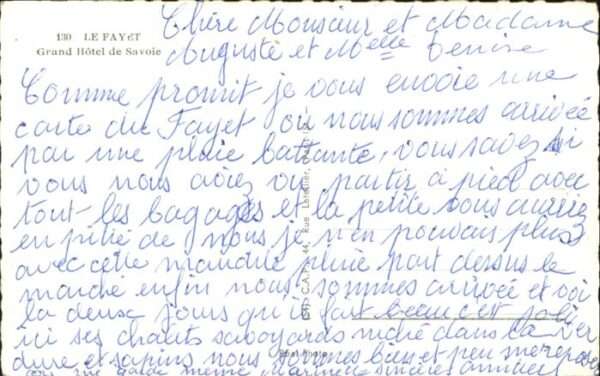 130 LE FAYET
Grand Hôtel de Savoie
Chère Monsieur et Madame
Auguste et Melle Denise
Comme promit je vous envoie une
carte du Fayet où nous sommes arrivée
par une pluie battante, vous savez si
vous nous aviez vu partir à pied avec
tout les bagages et la petite vous auriez
eu pitié de nous je n'en pouvais plus
avec cette maudite pluie part dessus le
marché enfin nous sommes arrivée et voi
la deux jours qu'il fait beau c'est joli
ici ses chalets savoyards niché dans la ver
dure et sapins nous sommes bien et peu me reposer